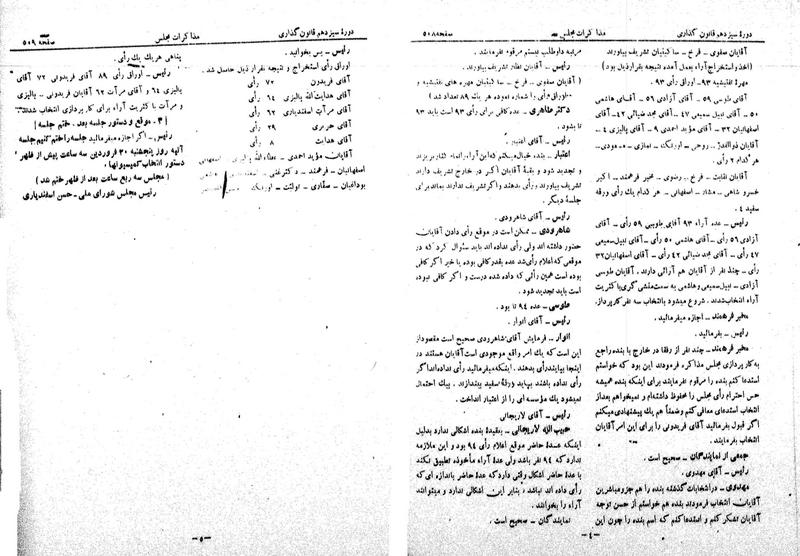 دورهٔ سیزدهم قانون گذاری
مذاکرات مجلس
صفحه ۵۰۸
آقایان صفوی - فرخ -
تشریف بیاورند
(اخذ و استخراج آراء بعمل آمده نتیجه بقرار ذیل بود)
مهرهٔ تفتیشیه ۹۳ - اوراق رأی ۹۳.
آقای طوسی ۵۹ - آقای آزادی ۵۶ - آقای هاشمی
۵۰ - آقای نبیل سمیعی ۴۷ - آقای مجد ضیائی ۴۲ - آقای
اصفهانیان ۳۲ - آقای مؤید احمدی ۹ - آقای پالیزی ۴ -
آقایان ذوالقدر - روحی - اورنگ -
هر کدام ۲ رأی
آقایان نقابت - فرخ - رضوی - مخبر فرهمند - اکبر
خسرو شاهی - مشار - اصفهانی - هر کدام یک رأی ورقه
سفید ۴.
رئیس - عده آراء ۹۳ آقای طوسی ۵۹ رأی - آقای
آزادی ۵۶ رأی - آقای هاشمی ۵۰ رأی - آقای نبیل سمیعی
۴۷ - آقای مجد ضیائی ۴۲ رأی - آقای اصفهانیان ۳۲
رأی - چند نفر از آقایان هم آرائی دارند. آقایان طوسی
آزادی - نبیل سمیعی و هاشمی به سمت منشی گری با کثریت
آراء انتخاب شدند. شروع میشود بانتخاب سه نفر کارپرداز.
مخبر فرهمند - اجازه میفرمائید.
رئیس - بفرمائید.
مخبر فرهمند - چند نفر از رفقا در خارج با بنده راجع
به کار پردازی مجلس مذاکره فرمودند این بود که خواستم
استدعا کنم بنده را مرقوم نفرمایند برای اینکه بنده همیشه
حس احترام رأی مجلس را محفوظ داشته‌ام و نمیخواهم بعد از
انتخاب استدعای معافی کنم و ضمناً هم یک پیشنهادی میکنم
اگر قبول بفرمائید آقای فریدونی را برای این امر آقایان
انتخاب بفرمایند.
جمعی از نمایندگان - صحیح است.
رئیس - آقای مهدوی.
مهدوی - در انتخابات گذشته بنده را هم جزو مباشرین
آقایان انتخاب فرمودند بنده هم خواستم از حسن توجه
آقایان تشکر کنم و استدعا کنم که اسم بنده را چون این
مرتبه داوطلب نیستم مرقوم نفرمایند.
رئیس - آقایان نظار تشریف بیاورند
(آقایان صفوی - فرخ -
مهره های تفتیشیه و
اوراق رأی را شماره نموده هر یک ۸۹ تعداد شد)
دکتر طاهری - عده کافی برای رأی ۹۳ است باید ۹۳
تا بشود.
رئیس - آقای اعتبار.
اعتبار - بنده خیال میکنم که این آراء را
و تجدید شود و بقیهٔ آقایان اگر در خارج تشریف دارند
تشریف بیاورند رأی بدهند و اگر تشریف ندارند بماند برای
جلسهٔ دیگر.
رئیس - آقای شاهرودی.
شاهرودی - ممکن است در موقع رأی دادن آقایان
حضور داشته اند ولی رأی نداده اند باید سئوال کرد که در
موقعی که اعلام رأی شد عده بقدر کافی بوده یا خیر اگر کافی
بوده است همین رأئی که داده شده درست و اگر کافی نبوده
است باید تجدید شود.
طوسی - عده ۹۴ تا بود.
رئیس - آقای انوار.
انوار - فرمایش آقای شاهرودی صحیح است مقصود از
این است که یک امر واقع موجودی است آقایان هستند در
اینجا بیایند رأی بدهند. اینکه میفرمائید رأی نداده اند اگر
نداده باشند بیاید ورقهٔ سفید بیندازند. بیک احتمال
نمیشود یک مؤسسه ای را از اعتبار انداخت.
رئیس - آقای لاریجانی
حبیب الله لاریجانی - بعقیدهٔ بنده اشکالی ندارد بدلیل
اینکه عدهٔ حاضر موقع اعلام رأی ۹۴ بود و این ملازمه
ندارد که ۹۴ نفر باشد ولی عدهٔ آراء مأخوذه تطبیق نکند
با عدهٔ حاضر اشکال وقتی دارد که عدهٔ حاضر باندازه ای که
رأی داده اند نباشد. بنابر این اشکالی ندارد و میتوانند
آراء را بخوانند.
نمایندگان - صحیح است.
- ٤ -
دورهٔ سیزدهم قانون گذاری
مذاکرات مجلس
صفحه ۵۰۹
رئیس - پس بخوانید.
اوراق رأی استخراج و نتیجه بقرار ذیل حاصل شد.
آقای فریدونی ۷۲ رأی
آقای هدایت الله پالیزی ۶۴ رأی
آقای مرآت اسفندیاری ۶۲ رأی
آقای ۲۹ رأی
آقای هدایت ۸ رأی
آقایان مؤید احمدی - عطاءالله پالیزی - اصفهانی
اصفهانیان - فرهمند - دکتر غنی -
بوداغیان - صفاری - دولت - اورنگ -
پناهی هر یک یک رأی.
رئیس - اوراق رأی ۸۹ آقای فریدونی ۷۲ آقای
پالیزی ۶۴ و آقای مرآت ۶۲ آقایان فریدونی - پالیزی
و مرآت با کثریت آراء برای کار پردازی انتخاب شدند.
[۳ - موقع و دستور جلسه بعد - ختم جلسه]
رئیس - اگر اجازه میفرمائید جلسه را ختم کنیم جلسه
آتیه روز پنجشنبه ۳۰ فروردین سه ساعت پیش از ظهر
دستور انتخاب کمیسیونها.
(مجلس سه ربع ساعت بعد از ظهر ختم شد)
رئیس مجلس شورای ملی - حسن اسفندیاری
- ٥ -